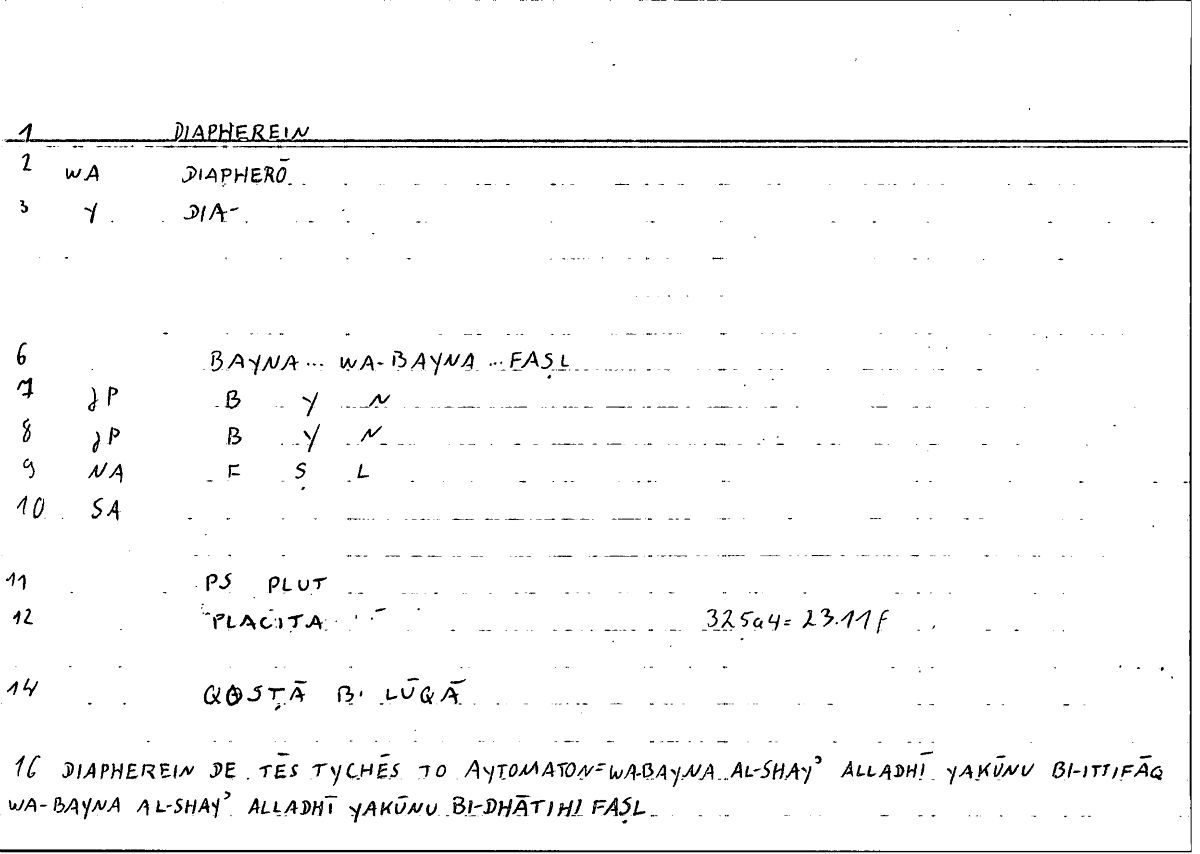 1 DIAPHEREIN
2 WA DIAPHERŌ
3 Y DIA-
6 BAYNA... WA-BAYNA ...FAṢL
7 JP B Y N
8 JP B Y N
9 NA F Ṣ L
10 SA
11 PS PLUT
12 PLACITA 325a4=23.11f
14 QOSṬĀ B. LŪQĀ
16 DIAPHEREIN DE TĒS TYCHĒS TO AYTOMATON=WA-BAYNA AL-SHAYʾ ALLADHĪ YAKŪNU BI-ITTIFĀQ
WA-BAYNA AL-SHAYʾ ALLADHĪ YAKŪNU BI-DHĀTIHI FAṢL